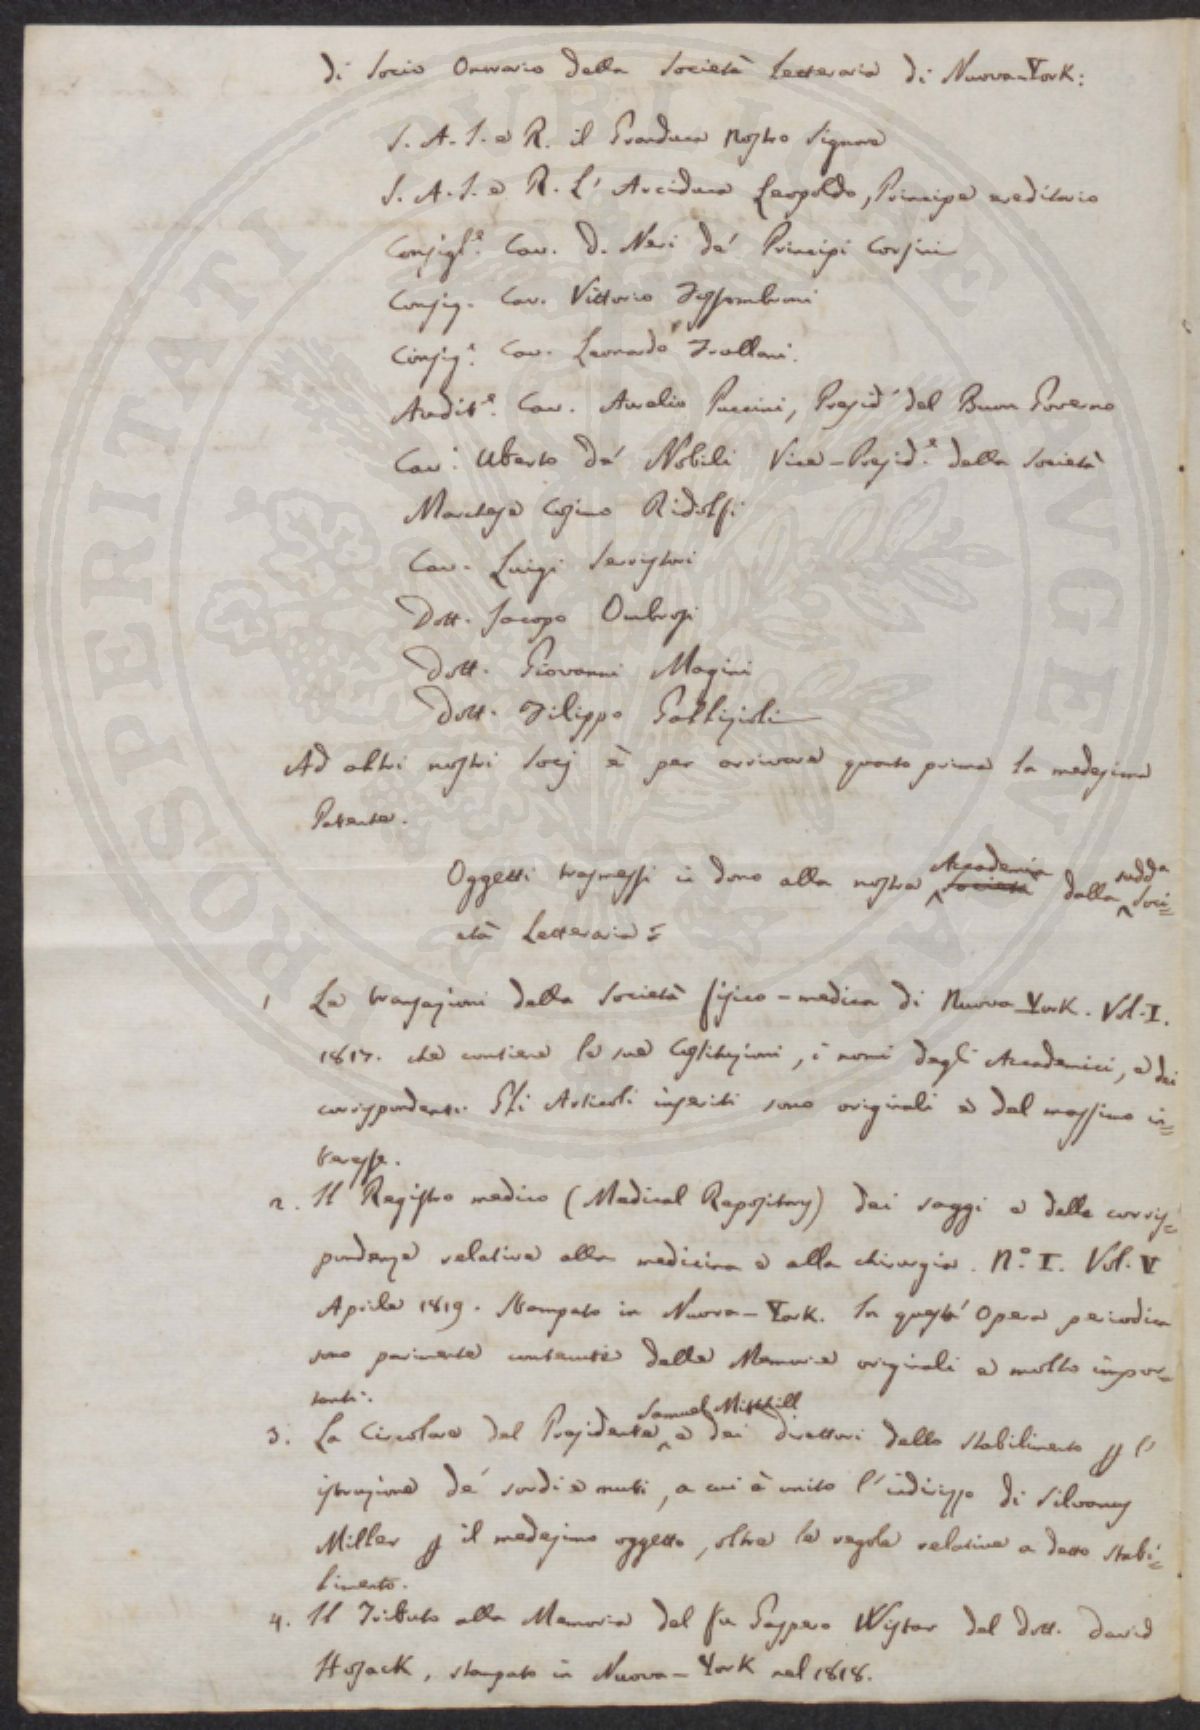 di Socio Onorario della Società Letteraria di Nuova-York:
S. A. I. e R. il Granduca Nostro Signore
S. A. I. e R. L' Arciduca Leopoldo, Principe ereditario
Consigl.e Cav. D. Neri de' Principi Corsini
Consig. Cav. Vittorio Fossombroni
Consig.e Cav. Leonardo Frullani.
Audit.e Cav. Aurelio Puccini, Presid.e del Buon Governo
Cav.e Uberto de' Nobili Vice-Presid.e della Società
Marchese Cosimo Ridolfi
Cav. Luigi Serristori
Dott. Jacopo Ombrosi
Dott. Giovanni Magini
Dott. Filippo Gallizioli
Ad altri nostri Socj è per arrivare quanto prima la medesima
Patente.
Oggetti trasmessi in dono alla nostra Società Accademia dalla sudd.a Soci=
età Letteraria =
1 Le transazioni della Società fisico-medica di Nuova-York. Vol. I.
1817. che contiene le sue Costituzioni, i nomi degli Accademici, e dei
corrispondenti. Gli Articoli inseriti sono originali e del massimo in=
teresse.
2. Il Registro medico (Medical Repository) dei saggi e delle corris=
pondenze relative alla medicina e alla chirurgia. N.o I. Vol. V
Aprile 1819. Stampato in Nuova-York. In quest' Opera periodica
sono parimente contenute delle Memorie originali e molto impor=
tanti.
3. La Circolare del Presidente Samuel Mitchill e dei direttori dello stabilimento p l'
istruzione de' sordi e muti, a cui è unito l'indirizzo di Silvanus
Miller p il medesimo oggetto, oltre le regole relative a detto stabi=
limento.
4. Il Tributo alla Memoria del fu Gaspero Wistar del dott. David
Hosack, stampato in Nuova-York nel 1818.
PROSPERITATI PUBLICAE AUGENDAE